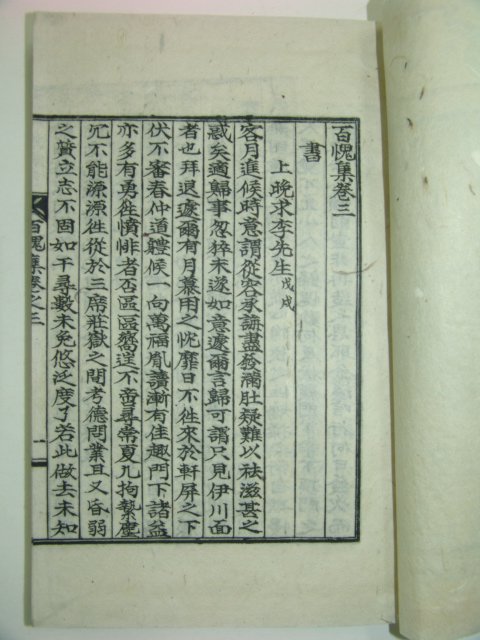 百愧集卷三
書
上晩求李先生 戊戌
客月進候時意謂從容承誨盡發滿肚疑難以祛滋甚之
惑矣適歸事忽猝未遂如意遽爾言歸可謂只見伊川面
者也拜退遽爾有月慕用之忱靡日不徃來於軒屏之下
伏不審春仲道體候一向萬福胤讀漸有佳趣門下諸益
亦多有勇徃憤悱者否區區窩逞不啻尋常夏九拘縶塵
冗不能源源徃從於三席莊嶽之間考德問業且又昏弱
之質立志不固如干尋數未免悠泛度了若此做去未知
百愧集卷之三
一